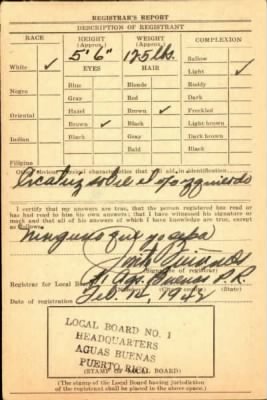 REGISTRAR'S REPORT
DESCRIPTION OF REGISTRANT
RACE HEIGHT (Approx.) WEIGHT (Approx.) COMPLEXION
5' 6" 125 lbs. Sallow
White ✓ EYES HAIR Light ✓
Blue Blonde Ruddy
Negro Gray Red Dark
Oriental Hazel Brown ✓ Freckled
Brown ✓ Black Light brown
Indian Black Gray Dark brown
Bald Black
Filipino
Other obvious physical characteristics that will aid in identification
Cicatriz sobre el ojo izquierdo
I certify that my answers are true; that the person registered has read or
has had read to him his own answers; that I have witnessed his signature
or mark and that all of his answers of which I have knowledge are true, except
as follows:
ninguno que yo sepa
(Signature of registrar)
Registrar for Local Board 1 Aguas Buenas P.R.
(State)
Date of registration Feb. 1942
LOCAL BOARD NO. 1
HEADQUARTERS
AGUAS BUENAS
PUERTO RICO
(STAMP OF LOCAL BOARD)
(The stamp of the Local Board having jurisdiction
of the registrant shall be placed in the above space.)